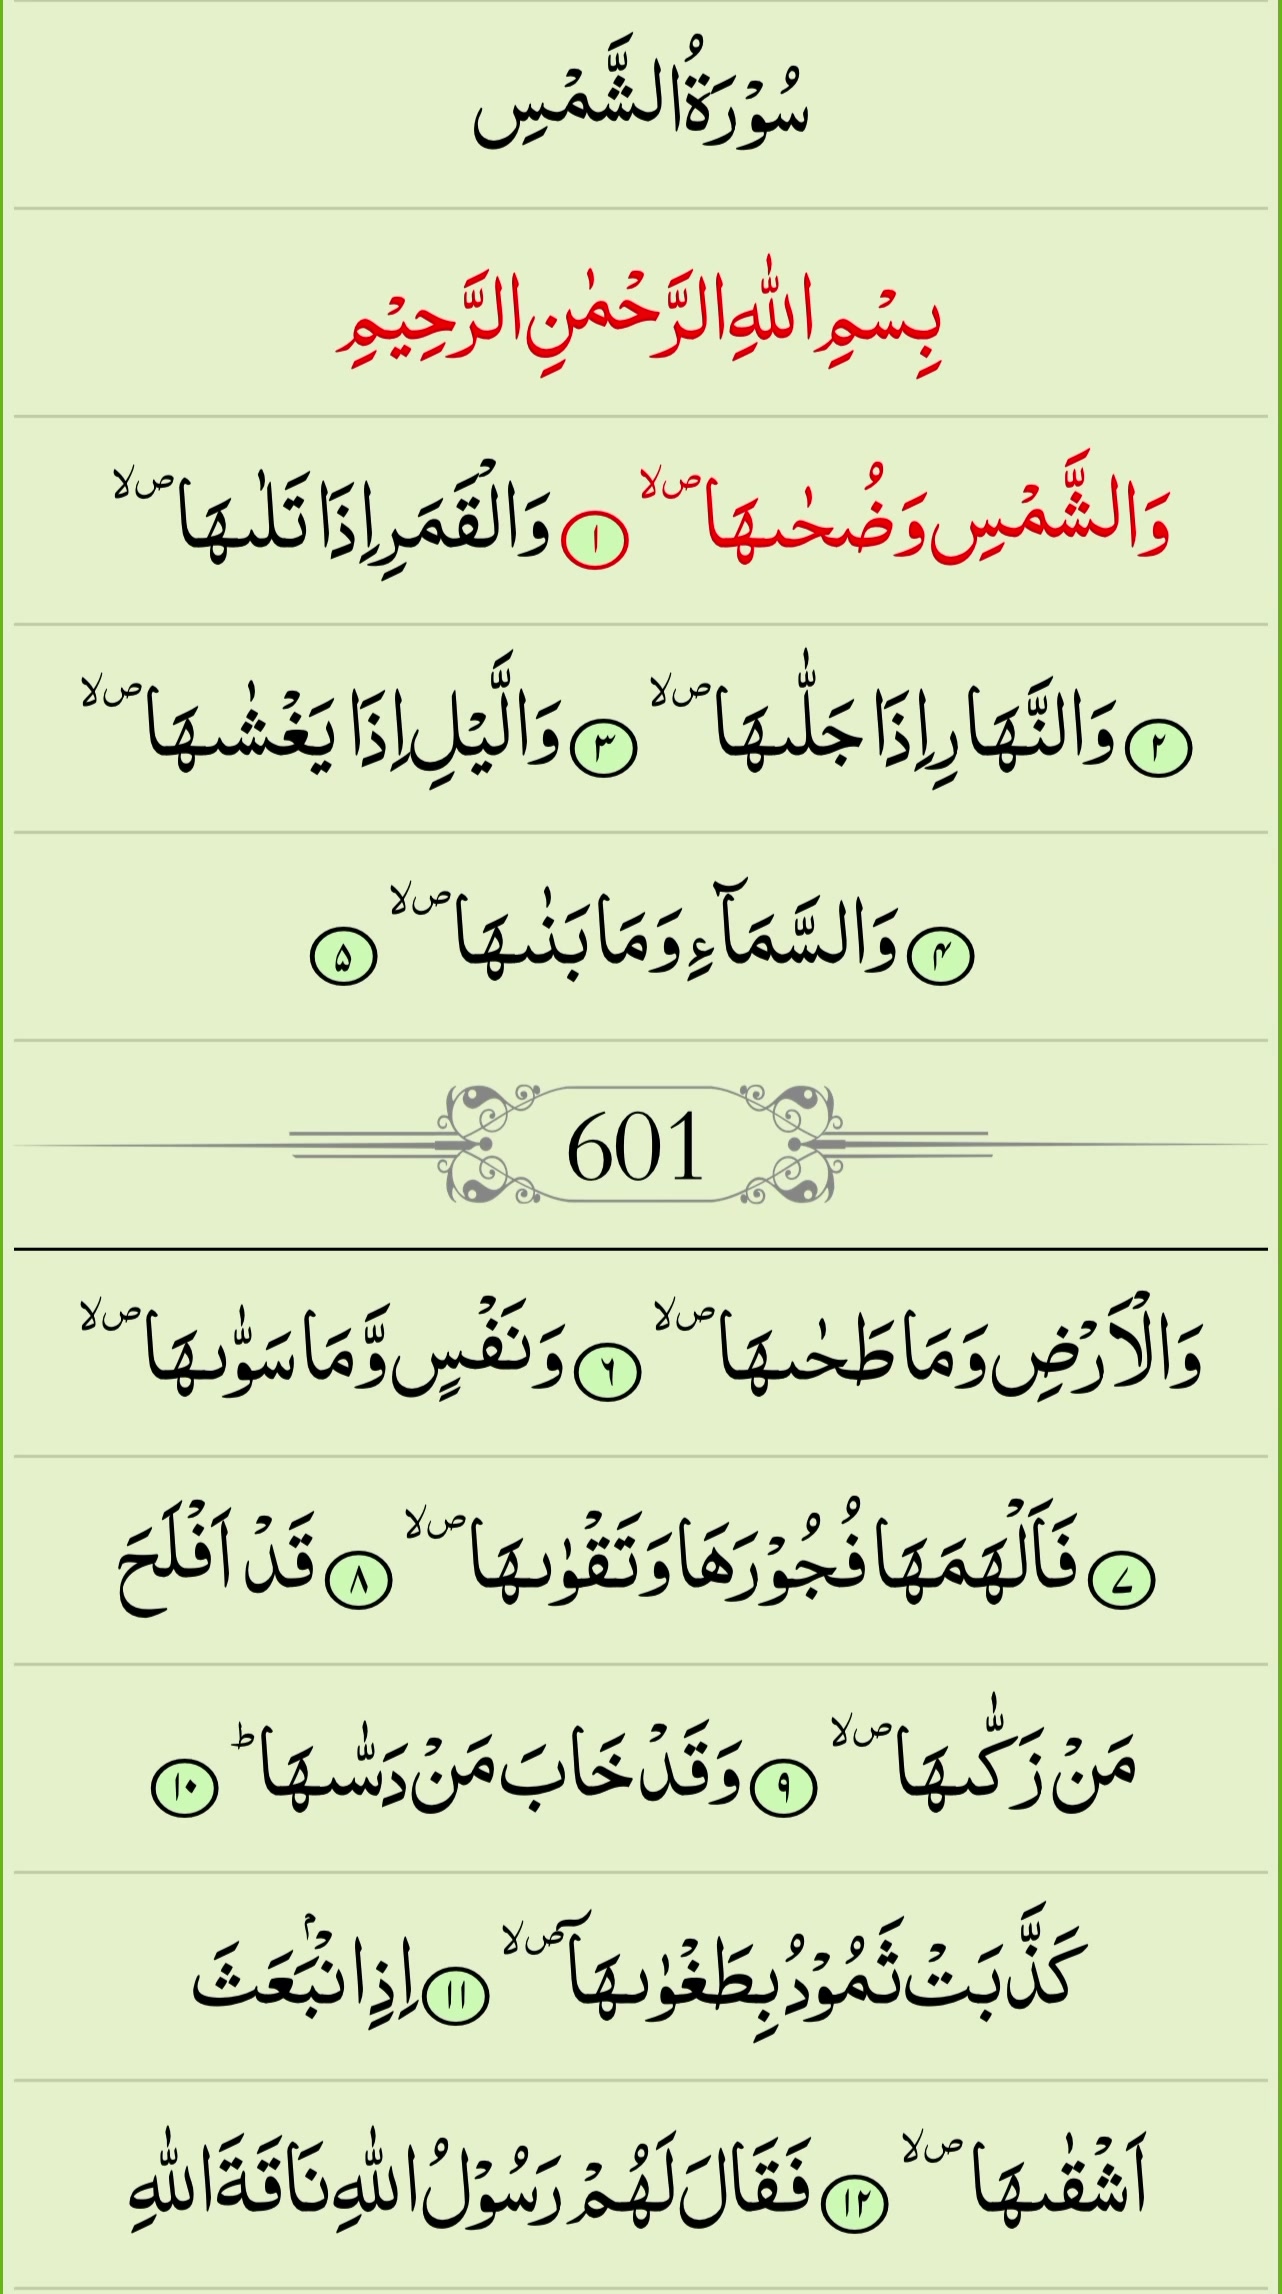 سُوۡرَةُ الشَّمۡسِ
بِسۡمِ اللّٰهِ الرَّحۡمٰنِ الرَّحِيۡمِ
وَالشَّمۡسِ وَضُحٰٮهَا ۙ ۪‏ ﴿۱﴾ وَالۡقَمَرِ اِذَا تَلٰٮهَا ۙ ۪‏
﴿۲﴾ وَالنَّهَارِ اِذَا جَلّٰٮهَا ۙ ۪‏ ﴿۳﴾ وَالَّيۡلِ اِذَا يَغۡشٰٮهَا ۙ ۪‏
﴿۴﴾ وَالسَّمَآءِ وَمَا بَنٰٮهَا ۙ ۪‏ ﴿۵﴾
601
وَالۡاَرۡضِ وَمَا طَحٰٮهَا ۙ ۪‏ ﴿۶﴾ وَنَفۡسٍ وَّمَا سَوّٰٮهَا ۙ ۪‏
﴿۷﴾ فَاَلۡهَمَهَا فُجُوۡرَهَا وَتَقۡوٰٮهَا ۙ ۪‏ ﴿۸﴾ قَدۡ اَفۡلَحَ
مَنۡ زَكّٰٮهَا ۙ ۪‏ ﴿۹﴾ وَقَدۡ خَابَ مَنۡ دَسّٰٮهَا ؕ‏ ﴿۱۰﴾
كَذَّبَتۡ ثَمُوۡدُ بِطَغۡوٰٮهَآ ۙ ۪‏ ﴿۱۱﴾ اِذِ انۡۢبَعَثَ
اَشۡقٰٮهَا ۙ ۪‏ ﴿۱۲﴾ فَقَالَ لَهُمۡ رَسُوۡلُ اللّٰهِ نَاقَةَ اللّٰهِ